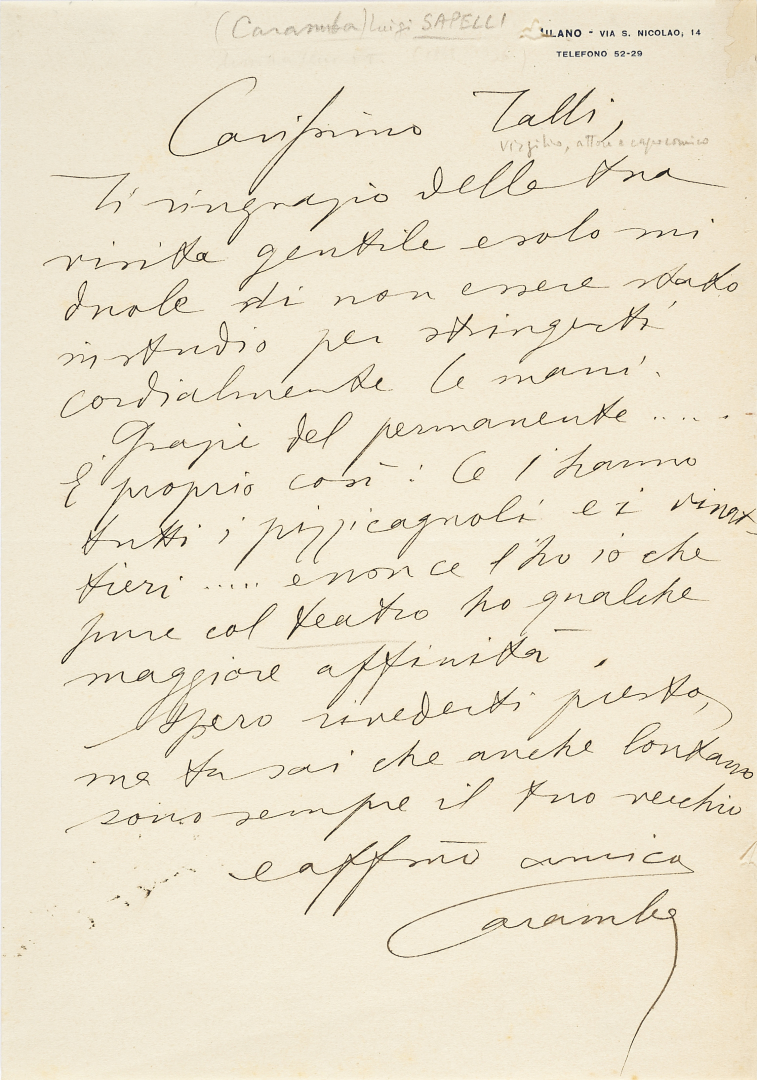 (Caramba) Luigi SAPELLI
MILANO - VIA S. NICOLAO, 14
TELEFONO 52-29
Carissimo Talli,
Virgilio, attore e capocomico
Ti ringrazio della tua
visita gentile e solo mi
duole di non essere stato
in studio per stringerti
cordialmente le mani.
Grazie del permanente .....
E' proprio così: Ce l'hanno
tutti i pizzicagnoli e i vinat-
tieri ..... e non ce l'ho io che
pure col teatro ho qualche
maggiore affinità.
Spero rivederti presto,
ma tu sai che anche lontano
sono sempre il tuo vecchio
e affmo amico
Caramba